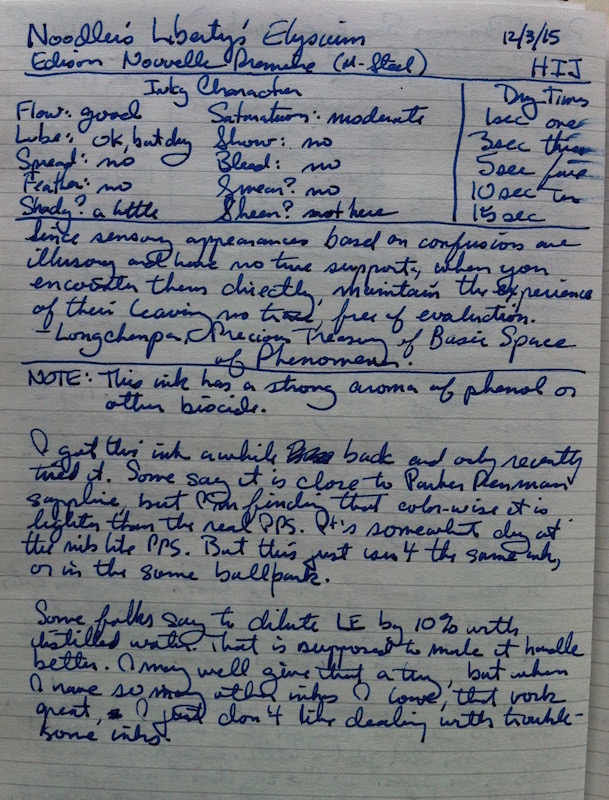 Noodler's Liberty's Elysium 12/3/15
Edison Nouvelle Premiere (M-Steel) HIJ
Inky Character Dry Times
Flow: good Saturation: moderate 1sec one
Lube: ok, but dry Show: no 3sec three
Spread: no Bleed: no 5sec five
Feather: no Smear? no 10sec ten
Shady? a little Sheen? not here 15sec
Since sensory appearances based on confusion are
illusory and have no true support, when you
encounter them directly, maintain the experience
of their leaving no trace, free of evaluation.
-Longchenpa, Precious Treasury of Basic Space
of Phenomena.
NOTE: This ink has a strong aroma of phenol or
other biocide.
I got this ink awhile back and only recently
tried it. Some say it is close to Parker Penman
sapphire, but I'm finding that color-wise it is
lighter than the real PPS. It's somewhat dry at
the nib like PPS. But this just isn't the same ink,
or in the same ballpark.
Some folks say to dilute LE by 10% with
distilled water. That is supposed to make it handle
better. I may well give that a try, but when
I have so many other inks I love, that work
great, I just don't like dealing with trouble-
some inks.